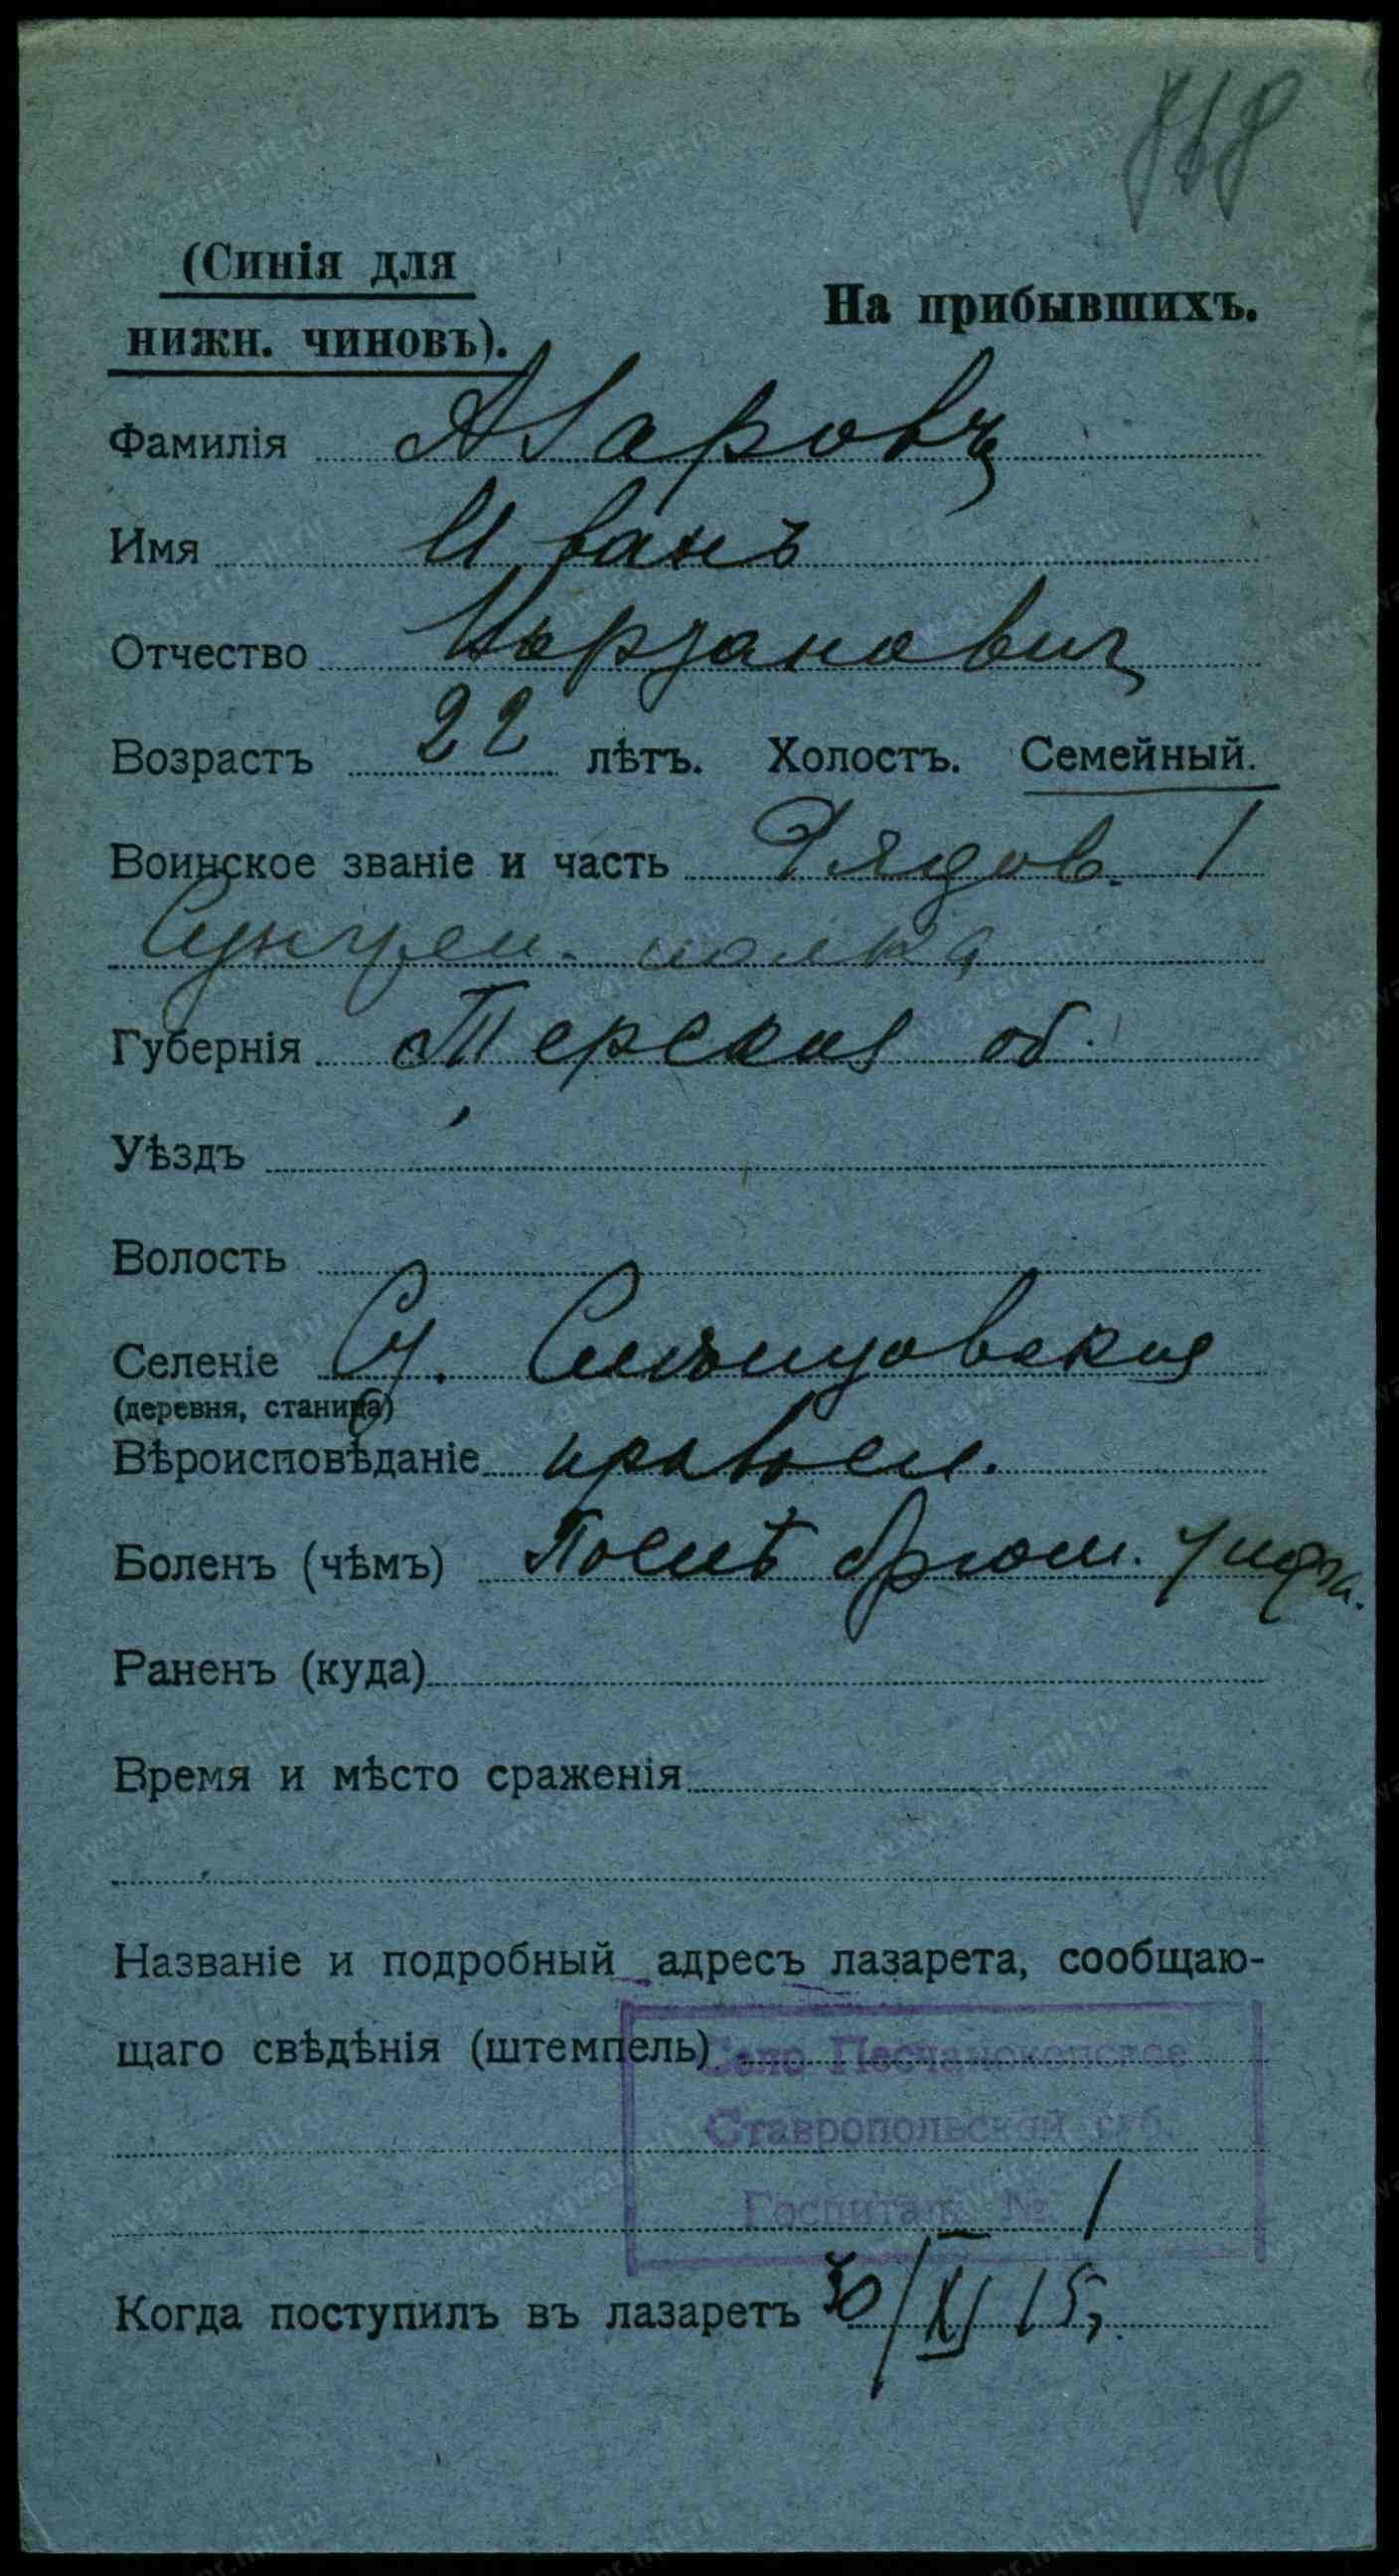 868
(Синія для
нижн. чиновъ).
На прибывшихъ.
Фамилія Азаровъ
Имя Иванъ
Отчество
Возрастъ 22 лѣтъ. Холостъ. Семейный.
Воинское званіе и часть Рядов. 1
Сунжен. полка
Губернія Терская об.
Уѣздъ
Волость
Селеніе Ст. Слѣпцовская
(деревня, станица)
Вѣроисповѣданіе правосл.
Боленъ (чѣмъ) Послѣ брюш. тифа.
Раненъ (куда)
Время и мѣсто сраженія
Названіе и подробный адресъ лазарета, сообщаю-
щаго свѣдѣнія (штемпель)
Село Песчанокопское
Ставропольской губ.
Госпиталь № 1
Когда поступилъ въ лазаретъ 30/XI 15 г.
www.gwar.mil.ru